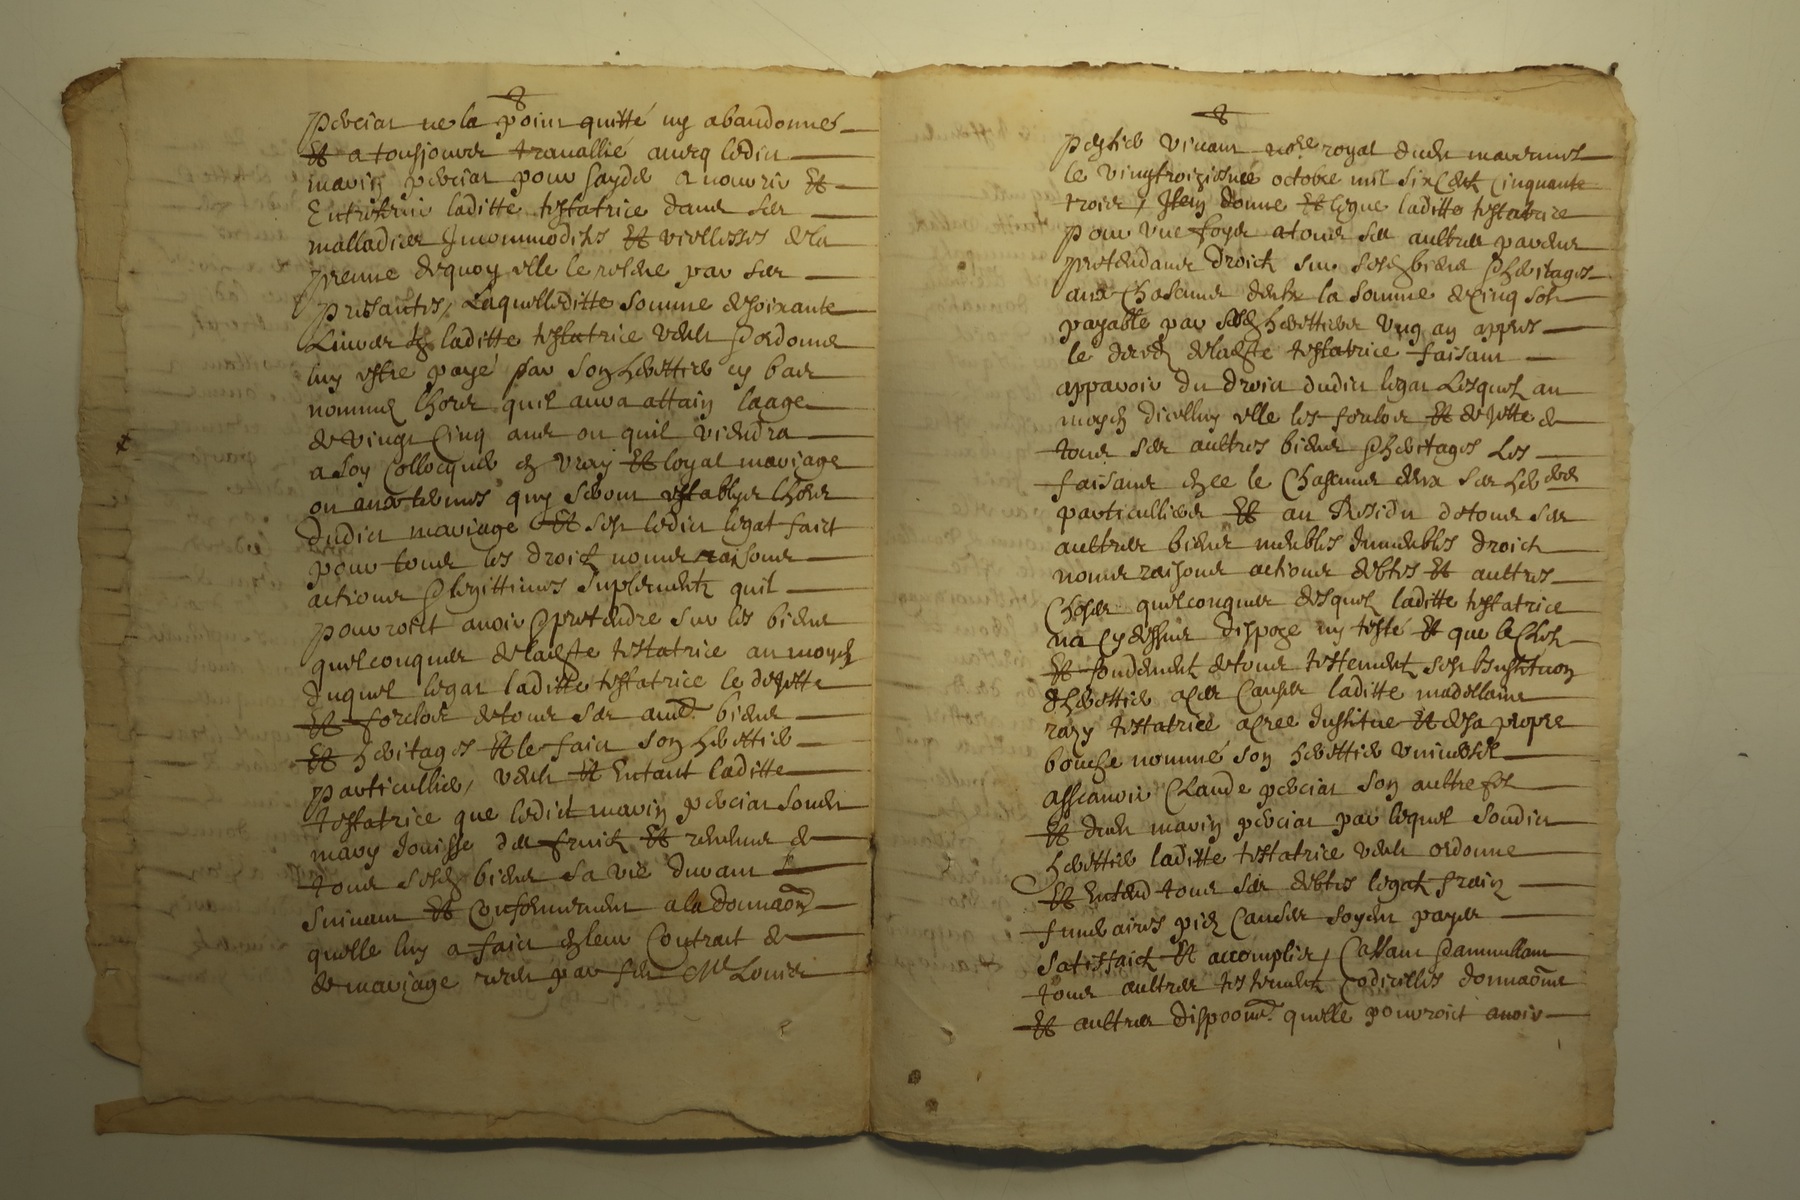 perciat ne la point quitté ny abandonnes
Et a tousjours travallié avecq ledict
mavin perciat pour sayder a nourrir Et
Entretenir laditte testatrice dans ses
malladies Incommodités Et viellesses de la
preuve dequoy elle le relève par ses
presantes, Laquelleditte somme de soixante
Livres laditte testatrice veult ordonne
luy estre payé par son herettier cy bas
nommé lhors quil aura attain laage
de vingt Cinq ans ou quil viendra
a soy Collocquer en vray Et loyal mariage
ou aux termes quy seront establys lhors
dudict mariage Et ce ledict legat faict
pour tous les droictz noms raisons
actions legittimes suplementz quil
pourroict avoir pretendre sur les biens
quelconques de laditte testatrice au moyen
duquel legat laditte testatrice le dejette
Et forclos de tous ses aultres biens
Et heritages Et le faict son herettier
particullier, veult Et Entant laditte
testatrice que ledict mavin perciat soudict
mary Jouisse des fruictz Et revenus de
tous sesdicts biens sa vie durant
suivant Et Conformement a la donnaon
quelle luy a faict en leur Contract de
de mariage receu par feu Me Louis
pestier vivant nore royal dudict
le vingtroiziesme octobre mil six Cent Cinquante
trois, Item donne Et legue laditte testatrice
pour une foys a tous ses aultres parens
pretendans droictz sur sesdicts biens heritages
aux Chascuns deulx la somme de Cinq solz
payable par sesdicts herettiers ung an appres
le deces de laditte testatrice faisant
apparoir du droict dudict legat Lesquels au
moyen dicelluy elle les forclos Et dejette de
tous ses aultres biens heritages Les
faisans en ce le Chascuns deux ses her
particulliers Et au Residu de tous ses
aultres biens meubles Immeubles droictz
noms raisons actions debtes Et aultres
Choses quelconques desquels laditte testatrice
na Cy dessus dispoze ny testé Et que le Chef
Et fondement de tous testementz soict Institution
dherettier a Ces Causes laditte madellaine
razy testatrice a Cree Institue Et de sa propre
bouche nommé son herettier universel
asscavoir Claude perciat son aultre filz
Et dudict mavin perciat par lequel soudict
herettier laditte testatrice veult ordonne
Et Entend tous ses debtes legatz fraiz
funeraires piez Causes soyent payes
satisfaictz Et accomplies, Cassant annullant
tous aultres testementz Codicilles donnaons
Et aultres dispoons quelle pourroict avoir